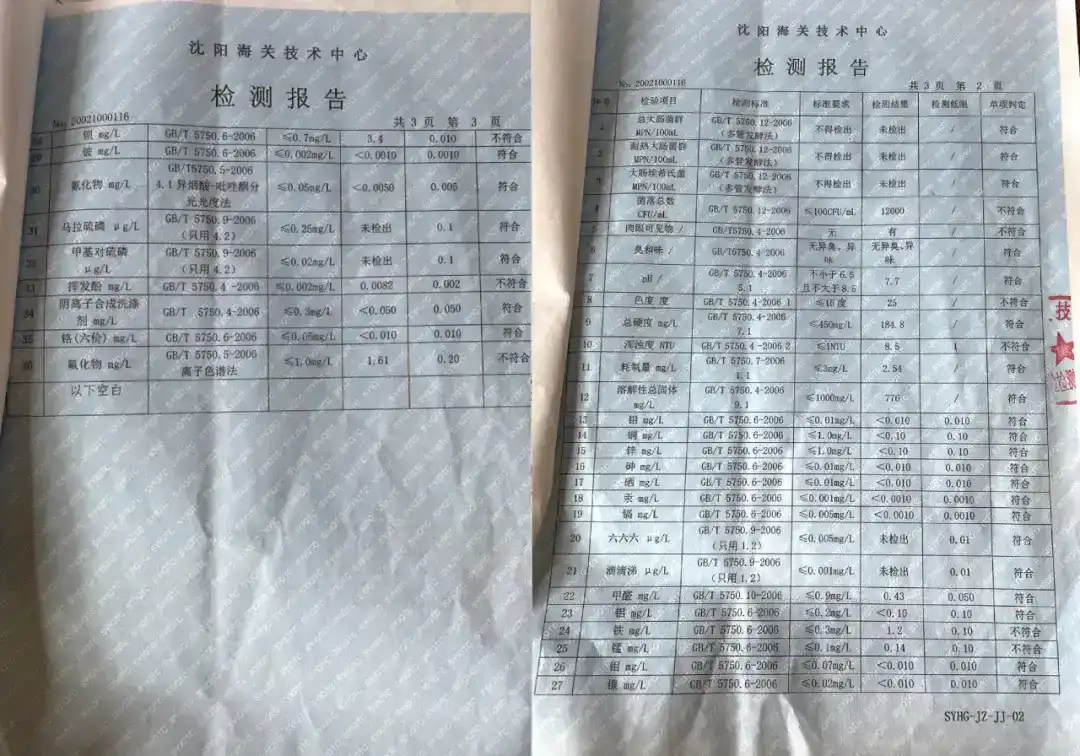 沈阳海关技术中心
检测报告
No. 20021000116 共 3 页 第 3 页
28 钡 mg/L GB/T 5750.6-2006 ≤0.7mg/L 3.4 0.010 不符合
29 铍 mg/L GB/T 5750.6-2006 ≤0.002mg/L <0.0010 0.0010 符合
30 氰化物 mg/L GB/T5750.5-2006 4.1 异烟酸-吡唑酮分光光度法 ≤0.05mg/L <0.0050 0.005 符合
31 马拉硫磷 μg/L GB/T 5750.9-2006 (只用4.2) ≤0.25mg/L 未检出 0.1 符合
32 甲基对硫磷 μg/L GB/T 5750.9-2006 (只用4.2) ≤0.02mg/L 未检出 0.1 符合
33 挥发酚 mg/L GB/T 5750.4 -2006 ≤0.002mg/L 0.0082 0.002 不符合
34 阴离子合成洗涤剂 mg/L GB/T 5750.4-2006 ≤0.3mg/L <0.050 0.050 符合
35 铬(六价) mg/L GB/T 5750.6-2006 ≤0.05mg/L <0.010 0.010 符合
36 氟化物 mg/L GB/T 5750.5-2006 离子色谱法 ≤1.0mg/L 1.61 0.20 不符合
以下空白
沈阳海关技术中心
检测报告
No. 20021000116 共 3 页 第 2 页
序号 检验项目 检测标准 标准要求 检测结果 检测低限 单项判定
1 总大肠菌群 MPN/100mL GB/T 5750.12-2006 (多管发酵法) 不得检出 未检出 / 符合
2 耐热大肠菌群 MPN/100mL GB/T 5750.12-2006 (多管发酵法) 不得检出 未检出 / 符合
3 大肠埃希氏菌 MPN/100mL GB/T 5750.12-2006 (多管发酵法) 不得检出 未检出 / 符合
4 菌落总数 CFU/mL GB/T 5750.12-2006 ≤100CFU/mL 12000 / 不符合
5 肉眼可见物 / GB/T5750.4-2006 无 有 / 不符合
6 臭和味 / GB/T5750.4-2006 无异臭、异味 无异臭、异味 / 符合
7 pH / GB/T 5750.4-2006 5.1 不小于6.5且不大于8.5 7.7 / 符合
8 色度 度 GB/T 5750.4-2006 1 ≤15 度 25 / 不符合
9 总硬度 mg/L GB/T 5750.4-2006 7.1 ≤450mg/L 184.8 / 符合
10 浑浊度 NTU GB/T 5750.4-2006 2 ≤1NTU 8.5 1 不符合
11 耗氧量 mg/L GB/T 5750.7-2006 1.1 ≤3mg/L 2.54 / 符合
12 溶解性总固体 mg/L GB/T 5750.4-2006 9.1 ≤1000mg/L 776 / 符合
13 铅 mg/L GB/T 5750.6-2006 ≤0.01mg/L <0.010 0.010 符合
14 铜 mg/L GB/T 5750.6-2006 ≤1.0mg/L <0.10 0.10 符合
15 锌 mg/L GB/T 5750.6-2006 ≤1.0mg/L <0.10 0.10 符合
16 砷 mg/L GB/T 5750.6-2006 ≤0.01mg/L <0.010 0.010 符合
17 硒 mg/L GB/T 5750.6-2006 ≤0.01mg/L <0.010 0.010 符合
18 汞 mg/L GB/T 5750.6-2006 ≤0.001mg/L <0.0010 0.0010 符合
19 镉 mg/L GB/T 5750.6-2006 ≤0.005mg/L <0.0010 0.0010 符合
20 六六六 μg/L GB/T 5750.9-2006 (只用1.2) ≤0.005mg/L 未检出 0.01 符合
21 滴滴涕 μg/L GB/T 5750.9-2006 (只用1.2) ≤0.001mg/L 未检出 0.01 符合
22 甲醛 mg/L GB/T 5750.10-2006 ≤0.9mg/L 0.43 0.050 符合
23 铝 mg/L GB/T 5750.6-2006 ≤0.2mg/L <0.10 0.10 符合
24 铁 mg/L GB/T 5750.6-2006 ≤0.3mg/L 1.2 0.10 不符合
25 锰 mg/L GB/T 5750.6-2006 ≤0.1mg/L 0.14 0.10 不符合
26 钼 mg/L GB/T 5750.6-2006 ≤0.07mg/L <0.010 0.010 符合
27 镍 mg/L GB/T 5750.6-2006 ≤0.02mg/L <0.010 0.010 符合
SYHG-JZ-JJ-02
技